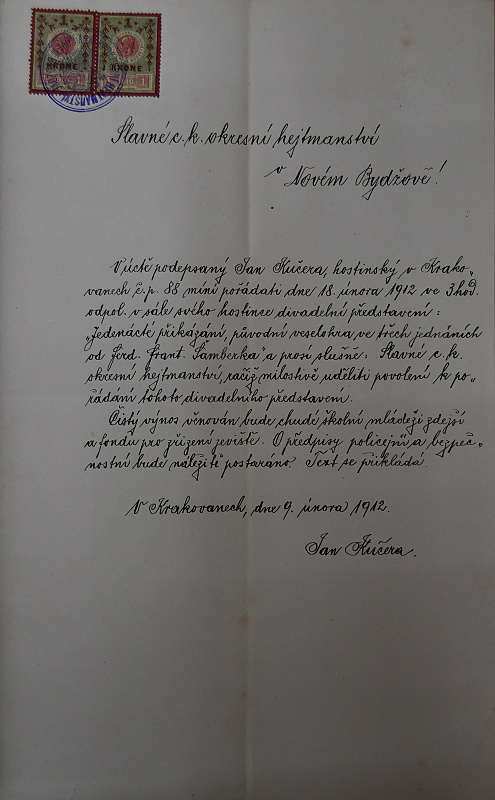 1 1
KRONE KRONE
Slavné c. k. okresní hejtmanství
v Novém Bydžově!
V úctě podepsaný Jan Kučera, hostinský v Krako-
vanech č. p. 88 míní pořádati dne 18. února 1912 ve 3 hod.
odpol. v sále svého hostince divadelní představení:
„Jedenácté přikázání, původní veselohra ve třech jednáních
od Ferd. Frant. Šamberka" a prosí slušně: Slavné c. k.
okresní hejtmanství, račiž milostivě uděliti povolení k po-
řádání tohoto divadelního představení.
Čistý výnos věnován bude chudé školní mládeži zdejší
a fondu pro zřízení jeviště. O předpisy policejní a bezpeč-
nostní bude náležitě postaráno. Text se přikládá.
V Krakovanech, dne 9. února 1912.
Jan Kučera.